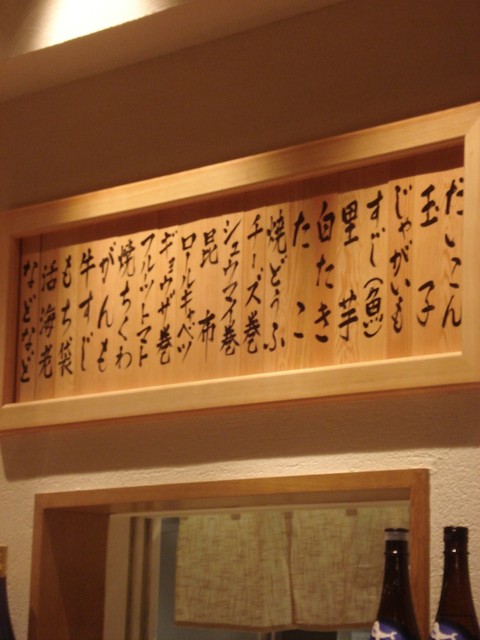 だいこん
玉子
じゃがいも
すじ(魚)
里芋
白たき
たこ
焼どうふ
チーズ巻
シュウマイ巻
昆布
ロールキャベツ
ギョウザ巻
フルーツトマト
焼ちくわ
がんも
牛すじ
もち袋
活海老
などなど